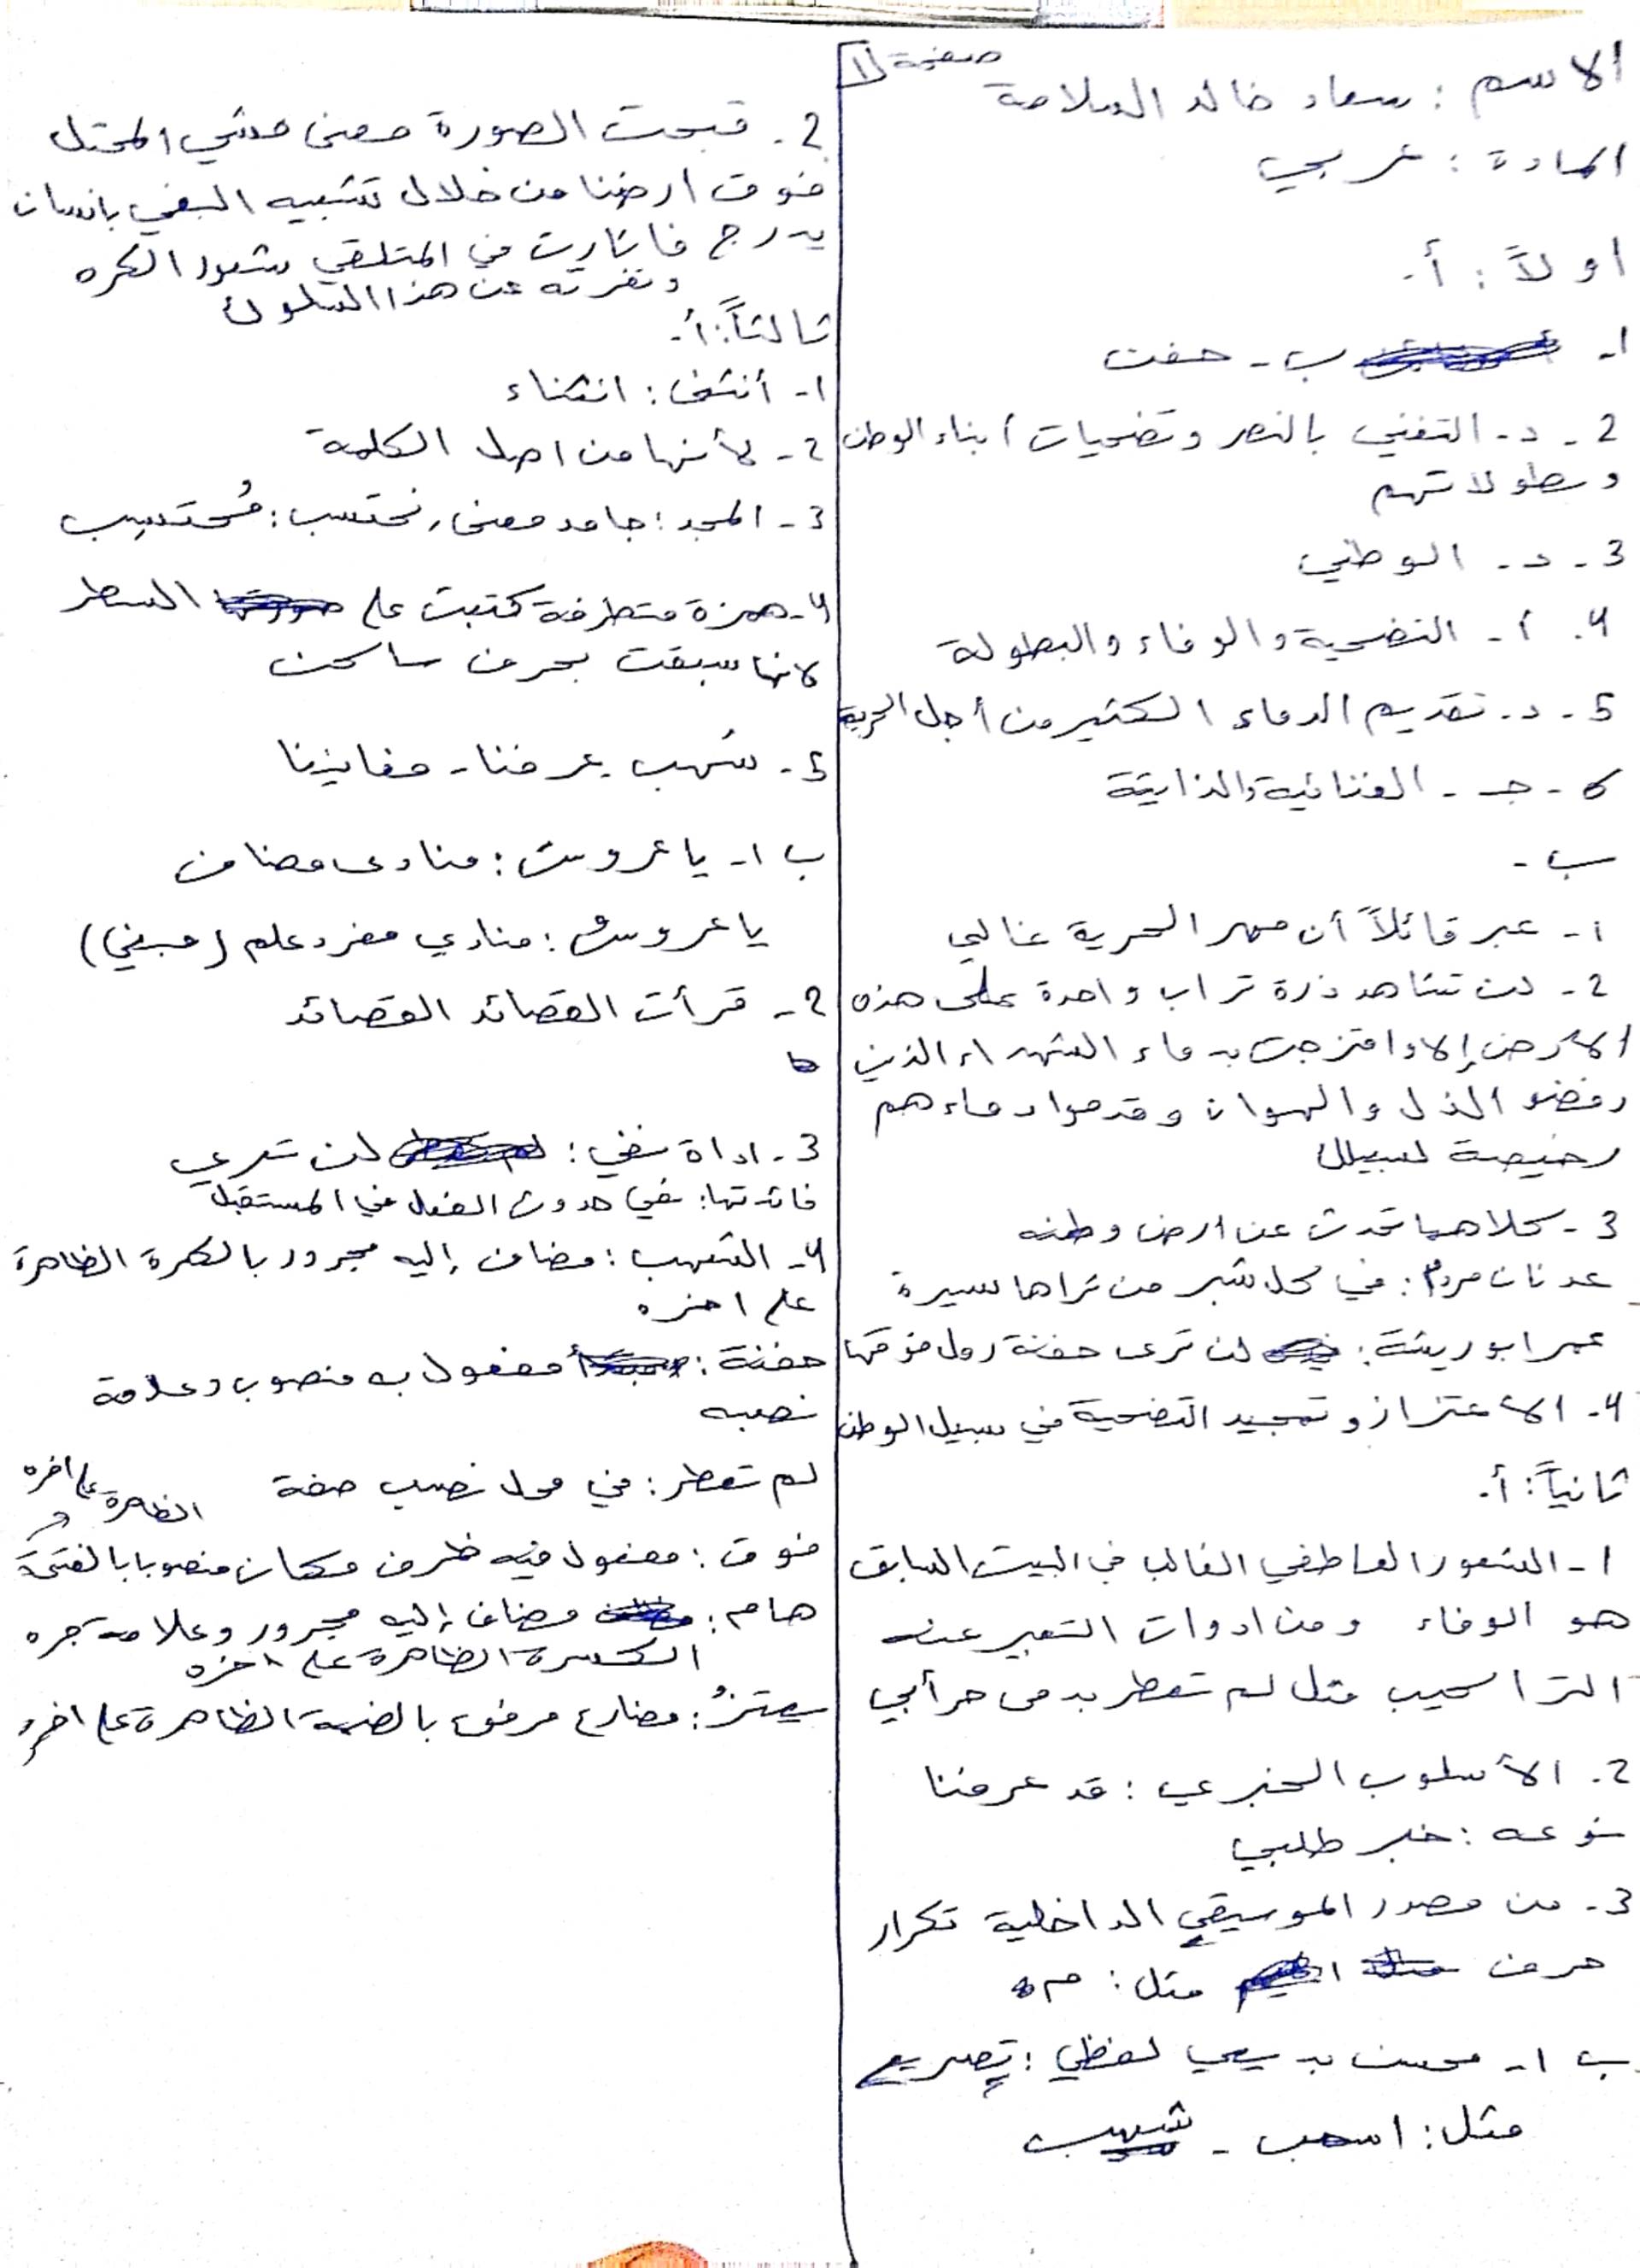 صفحة 1
الاسم : سعاد خالد السلامة
المادة : عربي
اولاً : أ-
1- ب - حفت
2 - د - التغني بالنصر وتضحيات أبناء الوطن
وبطولاتهم
3 - د - الوطني
4. أ - التضحية والوفاء والبطولة
5 - د - تقديم الدماء الكثير من أجل الحرية
6 - جـ - الغنائية والذايتة
ب -
1 - عبر قائلاً أن مهر الحرية غالي
2 - لن تشاهد ذرة تراب واحدة على هذه
الأرض إلا وامتزجت بدماء الشهداء الذين
رفضو الذل والهوان وقدموا دماءهم
رخيصة لسبيل
3 - كلاهما تحدث عن ارض وطنه
عدنان مردم : في كل شبر من ثراها سيرة
عمر ابو ريشة : لن ترى حفنة رمل فوقها
4 - الاعتزاز وتمجيد التضحية في سبيل الوطن
ثانياً : أ-
1 - الشعور العاطفي الغالب في البيت السابق
هو الوفاء ومن ادوات التعبير عنه
التراكيب مثل لم تعطر بدمى حر أبي
2. الأسلوب الخبري : قد عرفنا
نوعه : خبر طلبي
3 - من مصدر الموسيقى الداخلية تكرار
حرف مثل : م
ب 1 - محسن بديعي لفظي : تصريع
مثل : اسحب - شهب
2 - قبحت الصورة معنى مشي المحتل
فوق ارضنا من خلال تشبيه البغي بانسان
يدرج فاثارت في المتلقي شعور الكره
ونفرته عن هذا السلوك
ثالثاً : أ-
1 - أنثنى : انثناء
2 - لأنها من اصل الكلمة
3 - المجد : جامد معنى , نحتسب : مُحتسِب
4 - همزة متطرفة كتبت على السطر
لانها سبقت بحرف ساكن
5 - شهب - عرفنا - مغانينا
ب 1 - يا عروس : منادى مضاف
يا عروسُ : منادي مفرد علم (مبني)
2 - قرأت القصائد القصائد
3 - اداة نفي : لن تري
فائدتها : نفي حدوث الفعل في المستقبل
4 - الشهب : مضاف إليه مجرور بالكسرة الظاهرة
على اخره
حفنة : مفعول به منصوب وعلامة
نصبه
لم تعطر : في محل نصب صفة
فوق : مفعول فيه ظرف مكان منصوبا بالفتحة
الظاهرة على اخره
هام : مضاف إليه مجرور وعلامة جره
الكسرة الظاهرة على اخره
يعتزُ : مضارع مرفوع بالضمة الظاهرة على اخره